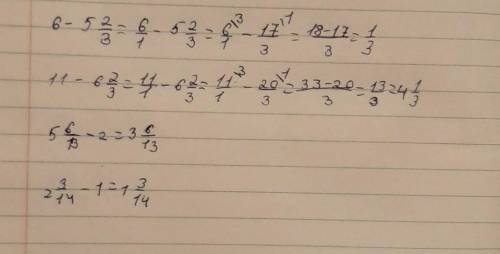 6 - 5 2/3 = 6/1 - 5 2/3 = 6\3/1 - 17\1/3 = 18-17/3 = 1/3
11 - 6 2/3 = 11/1 - 6 2/3 = 11\3/1 - 20\1/3 = 33-20/3 = 13/3 = 4 1/3
5 6/13 - 2 = 3 6/13
2 3/14 - 1 = 1 3/14